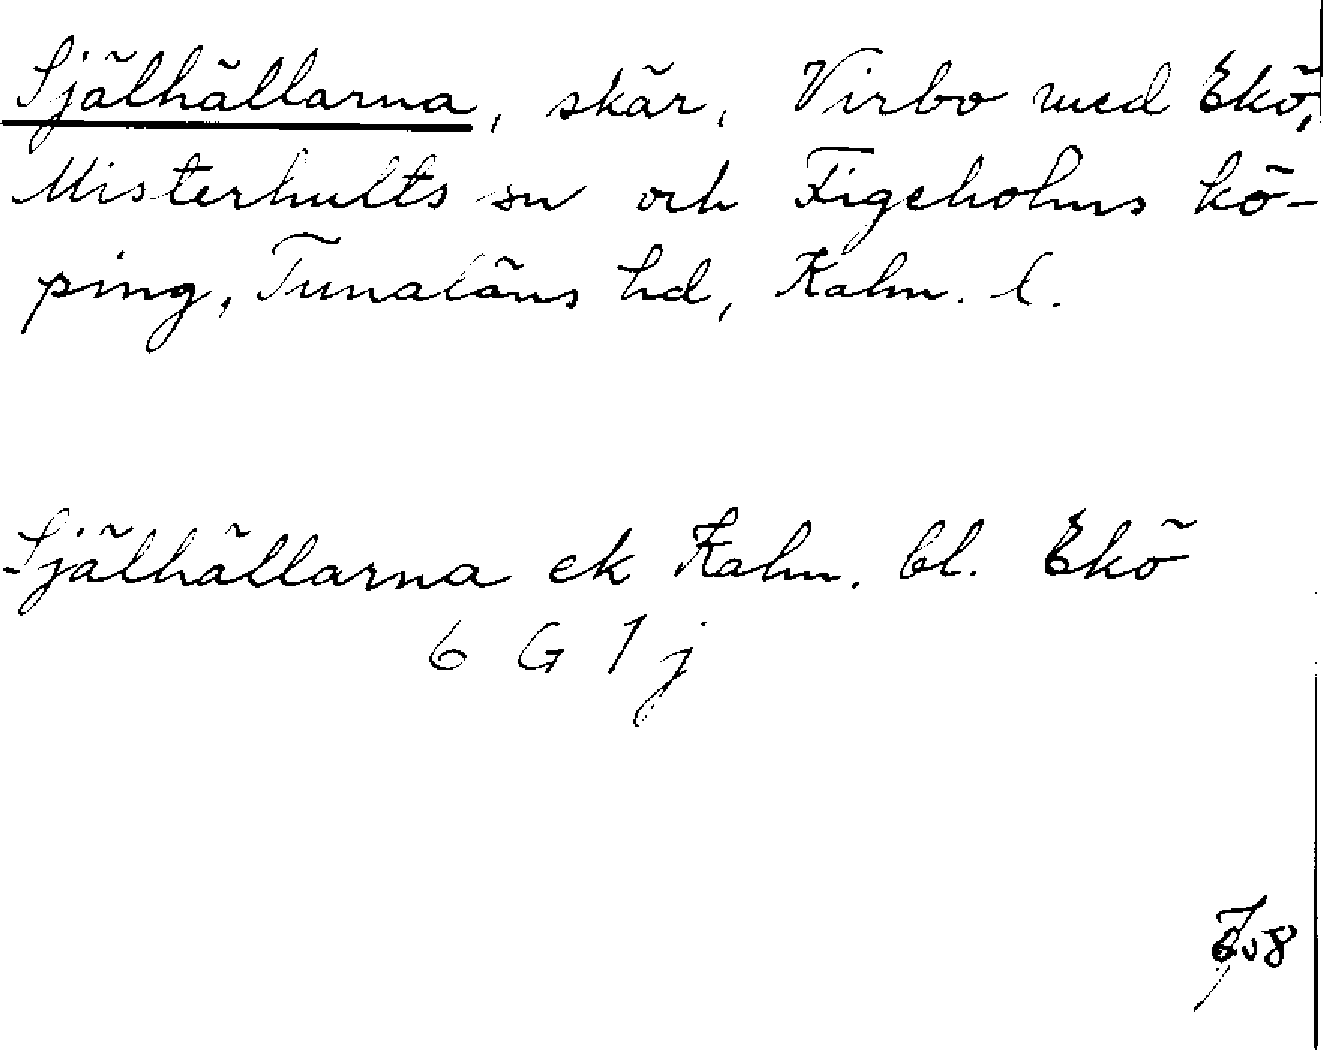 Själhällarna, skär, Virbo med Ekö,
Misterhults sn och Figeholms kö-
ping, Tunaläns hd, Kalm. l.
Själhällarna ek Kalm. bl. Ekö
6 G 7 j